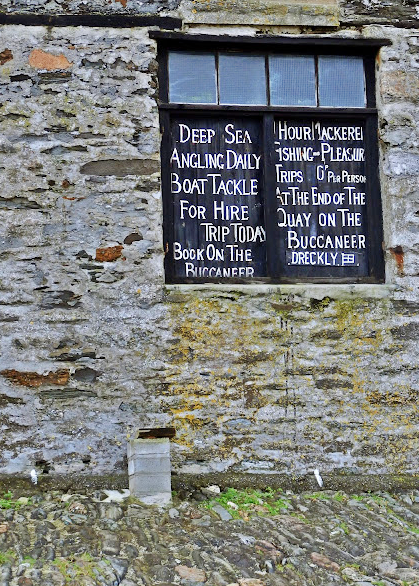 DEEP SEA
ANGLING DAILY
BOAT TACKLE
FOR HIRE
TRIP TODAY
BOOK ON THE
BUCCANEER
HOUR MACKEREL
FISHING-PLEASUR
TRIPS PER PERSON
AT THE END OF THE
QUAY ON THE
BUCCANEER
DRECKLY.